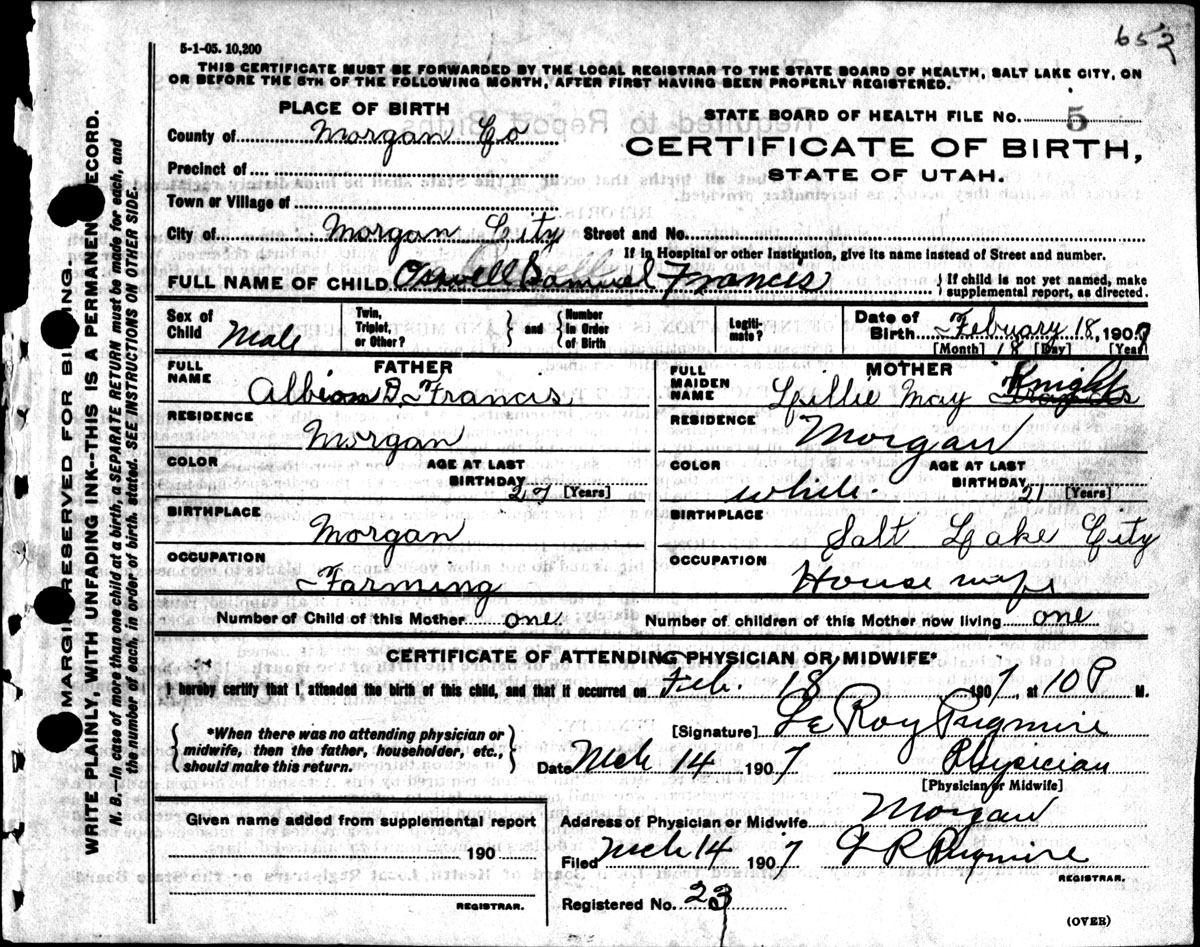 652
5-1-05. 10,200
THIS CERTIFICATE MUST BE FORWARDED BY THE LOCAL REGISTRAR TO THE STATE BOARD OF HEALTH, SALT LAKE CITY, ON
OR BEFORE THE 5TH OF THE FOLLOWING MONTH, AFTER FIRST HAVING BEEN PROPERLY REGISTERED.
PLACE OF BIRTH
STATE BOARD OF HEALTH FILE NO. 5
County of Morgan Co
CERTIFICATE OF BIRTH,
STATE OF UTAH.
Precinct of
Town or Village of
City of Morgan City Street and No.
If in Hospital or other Institution, give its name instead of Street and number.
FULL NAME OF CHILD Samuel Francis { If child is not yet named, make
supplemental report, as directed.
Sex of
Child Male
Twin,
Triplet,
or Other?
} and {
Number
in Order
of Birth
Legiti-
mate?
Date of
Birth Febuary 18, 1907
[Month] 18 [Day] [Year]
FULL
NAME
FATHER
Albion D. Francis
FULL
MAIDEN
NAME
MOTHER
Lillie May Knights
RESIDENCE
Morgan
RESIDENCE
Morgan
COLOR
AGE AT LAST
BIRTHDAY 27 [Years]
COLOR
white.
AGE AT LAST
BIRTHDAY 21 [Years]
BIRTHPLACE
Morgan
BIRTHPLACE
Salt Lake City
OCCUPATION
Farming
OCCUPATION
House wife
Number of Child of this Mother one. Number of children of this Mother now living one
CERTIFICATE OF ATTENDING PHYSICIAN OR MIDWIFE*
I hereby certify that I attended the birth of this child, and that it occurred on Feb. 18 1907, at 10 P M.
{ *When there was no attending physician or
midwife, then the father, householder, etc.,
should make this return. }
[Signature] Le Roy Pugmire
Date Mch 14 1907 Physician
[Physician or Midwife]
Given name added from supplemental report
190
REGISTRAR.
Address of Physician or Midwife Morgan
Filed Mch 14 1907 L R Pugmire
REGISTRAR.
Registered No. 23
(OVER)
MARGIN RESERVED FOR BINDING
WRITE PLAINLY, WITH UNFADING INK--THIS IS A PERMANENT RECORD.
N. B.--In case of more than one child at a birth, a SEPARATE RETURN must be made for each, and
the number of each, in order of birth, stated. SEE INSTRUCTIONS ON OTHER SIDE.